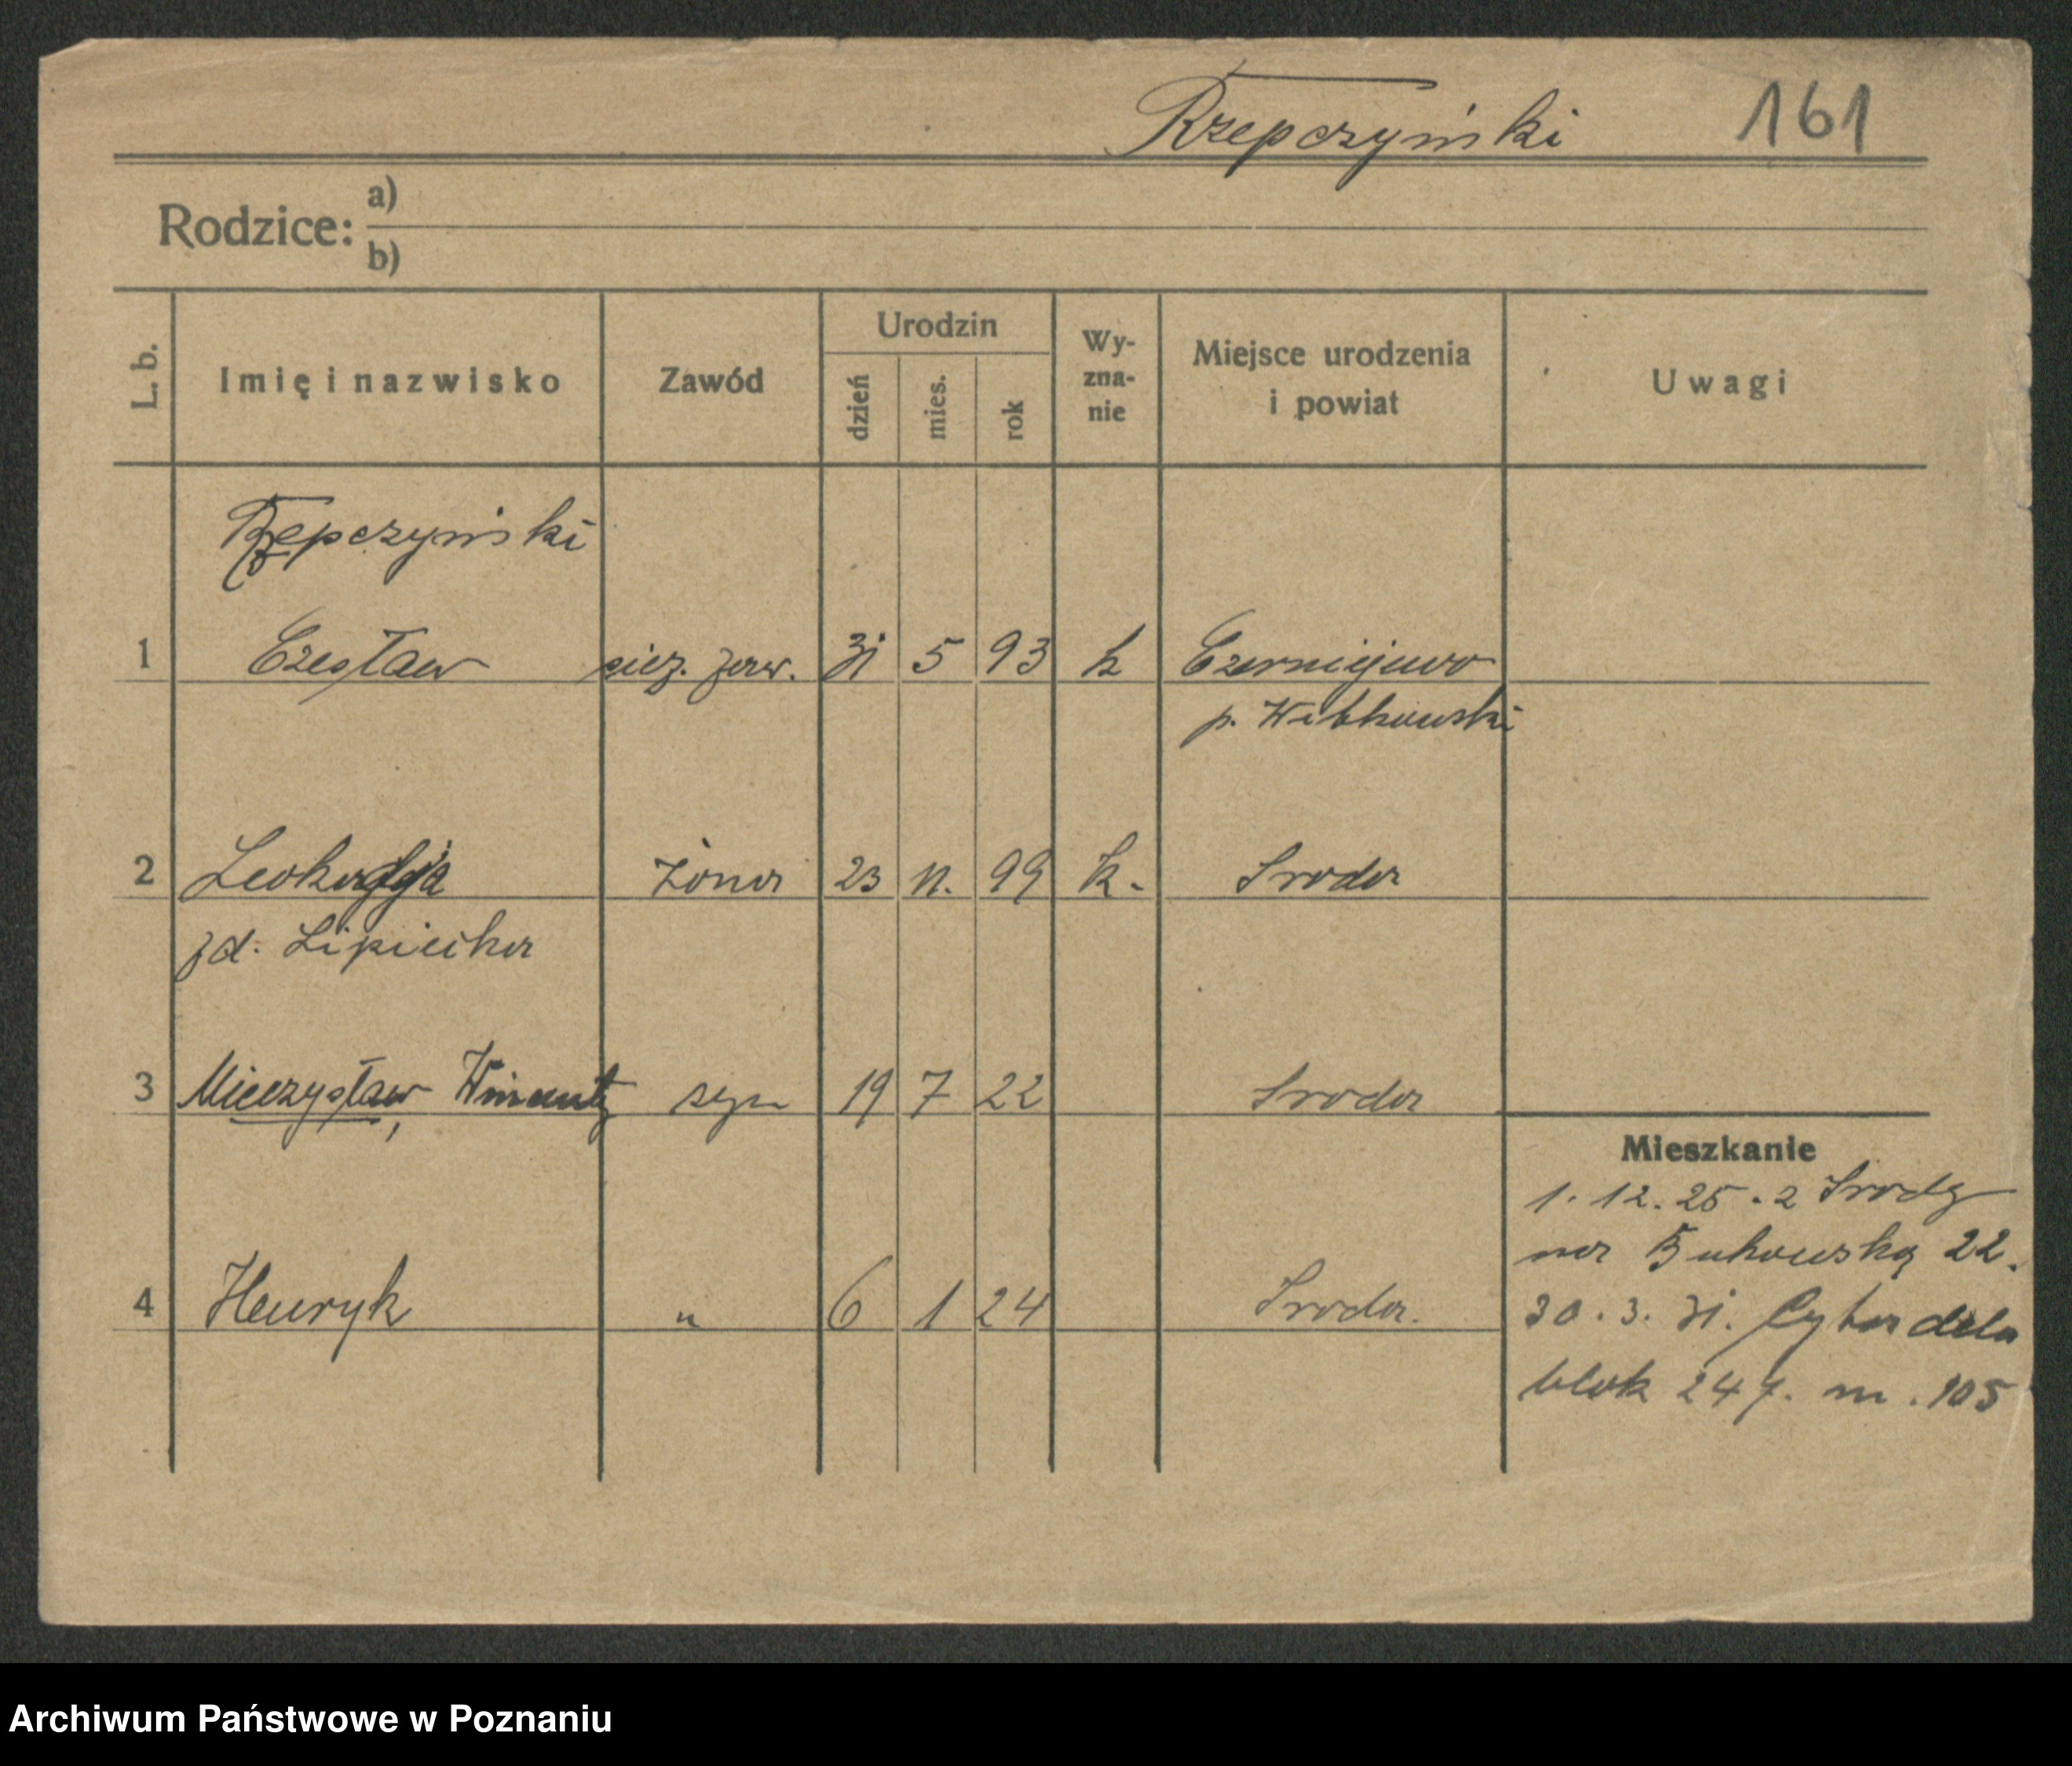 Rzepczyński 161
Rodzice: a)
b)
L. b. Imię i nazwisko Zawód Urodzin dzień mies. rok Wyznanie Miejsce urodzenia i powiat Uwagi
Rzepczyński
1 Czesław sierż. 31 5 93 k Czerniejewo
p. Witkowski
2 Leokadja żona 23 11. 99 k. Sroda
zd. Lipiecka
3 Mieczysław, Wincenty syn 19 7 22 Sroda
Mieszkanie
1. 12. 25 . z Srody
na Bukowską 22.
4 Henryk " 6 1 24 Sroda.
30. 3. 31. Cytadela
blok 247. m. 105
Archiwum Państwowe w Poznaniu